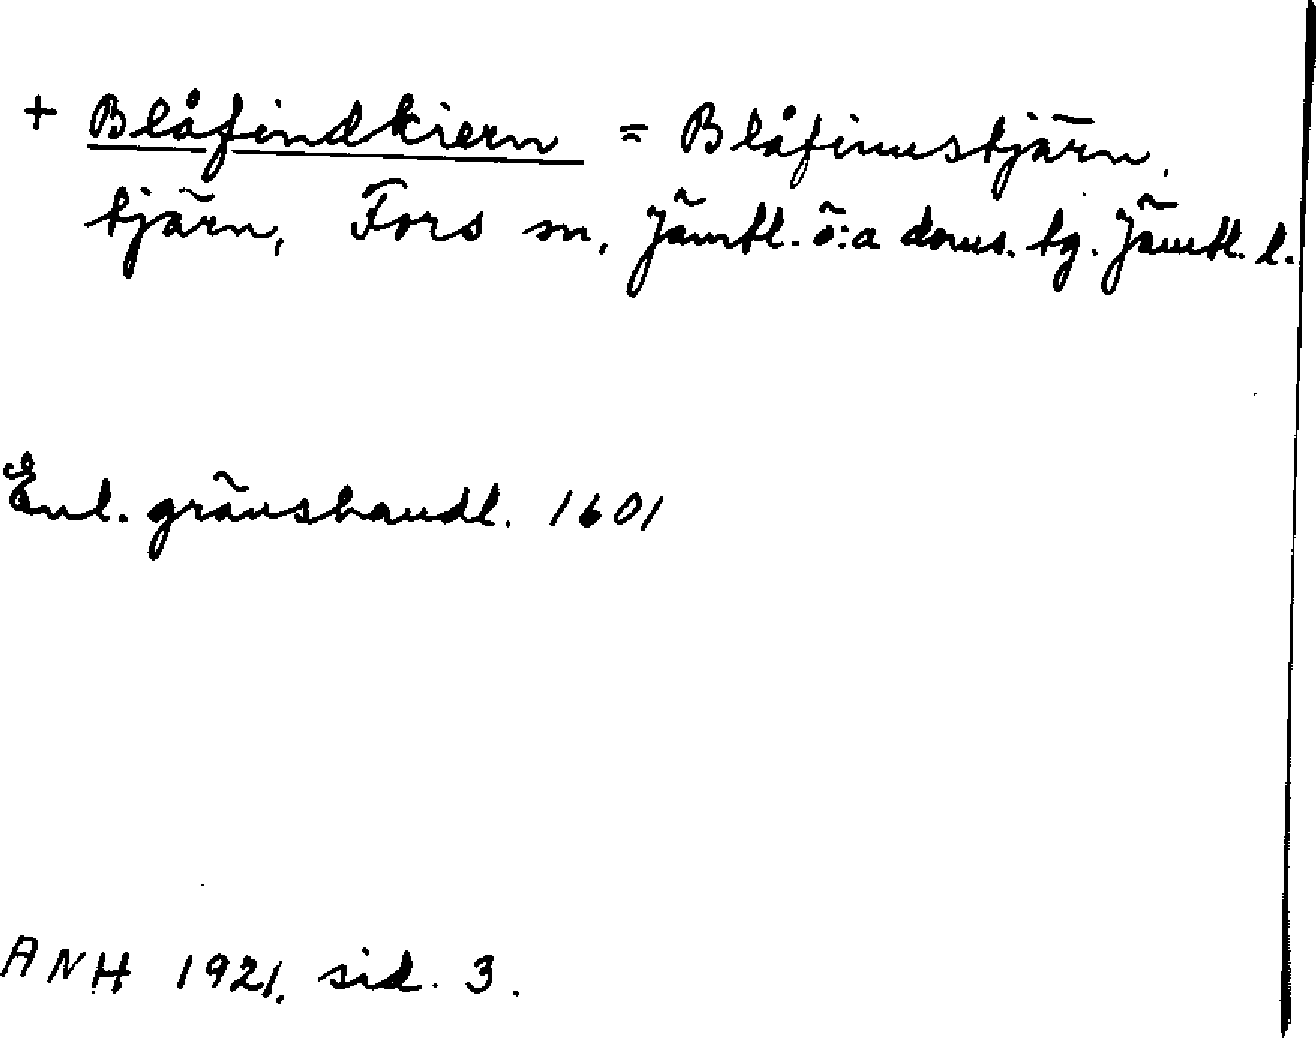 + Blåfindkiern = Blåfinnstjärn,
tjärn, Fors sn, Jämtl. ö:a doms. tg. Jämtl. l.
Enl. gränshandl. 1601
ANH 1921, sid. 3.